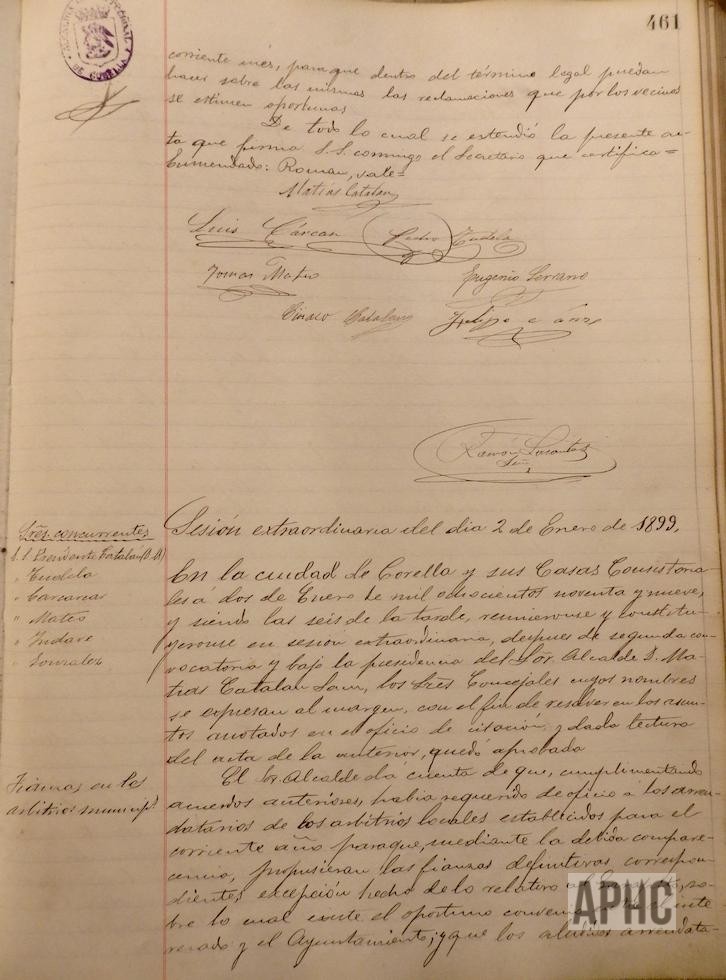 461
ALCALDIA CONSTITUCIONAL DE CORELLA
corriente mes, para que dentro del término legal puedan
hacer sobre las mismas las reclamaciones que por los vecinos
se estimen oportunas
De todo lo cual se extendió la presente ac-
ta que firma S.S. conmigo el Secretario que certifica=
Enmendado: Roman, vale=
Matias Catalan
Luis Cárcar
Pedro Tudela
Tomas Mateo
Eugenio Serrano
Ciriaco Catalan
Felipe
Ramón
Srio
Sesión extraordinaria del dia 2 de Enero de 1899.
Sres. concurrentes
S. S. Presidente Catalan (D. M)
" Tudela
" Carcar
" Mateo
" Gonzalez
En la ciudad de Corella y sus Casas Consistoria
les á dos de Enero de mil ochocientos noventa y nueve,
y siendo las seis de la tarde, reunieronse y constitu-
yeronse en sesion extraordinaria, despues de segunda con-
vocatoria y bajo la presidencia del Sor. Alcalde D. Ma-
tias Catalan Sanz, los Sres Concejales cuyos nombres
se expresan al margen, con el fin de resolver en los asun-
tos anotados en el oficio de citación, y dada lectura
del acta de la anterior, quedó aprobada
Fianzas en los
arbitrios municip.s
El Sr. Alcalde da cuenta de que, cumplimentando
acuerdos anteriores, habia requerido de oficio á los arren-
datarios de los arbitrios locales establecidos para el
corriente año para que, mediante la debida compare-
cencia, propusieran las fianzas definitivas correspon-
dientes, excepción hecha de lo relativo al so-
bre lo cual existe el oportuno convenio inte-
resado y el Ayuntamiento; y que los aludidos arrendata-
APHC